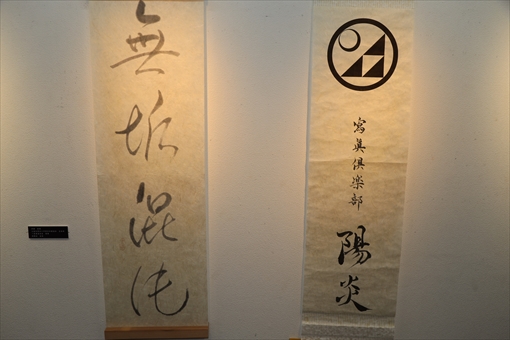 無垢混沌
寫真倶楽部
陽炎